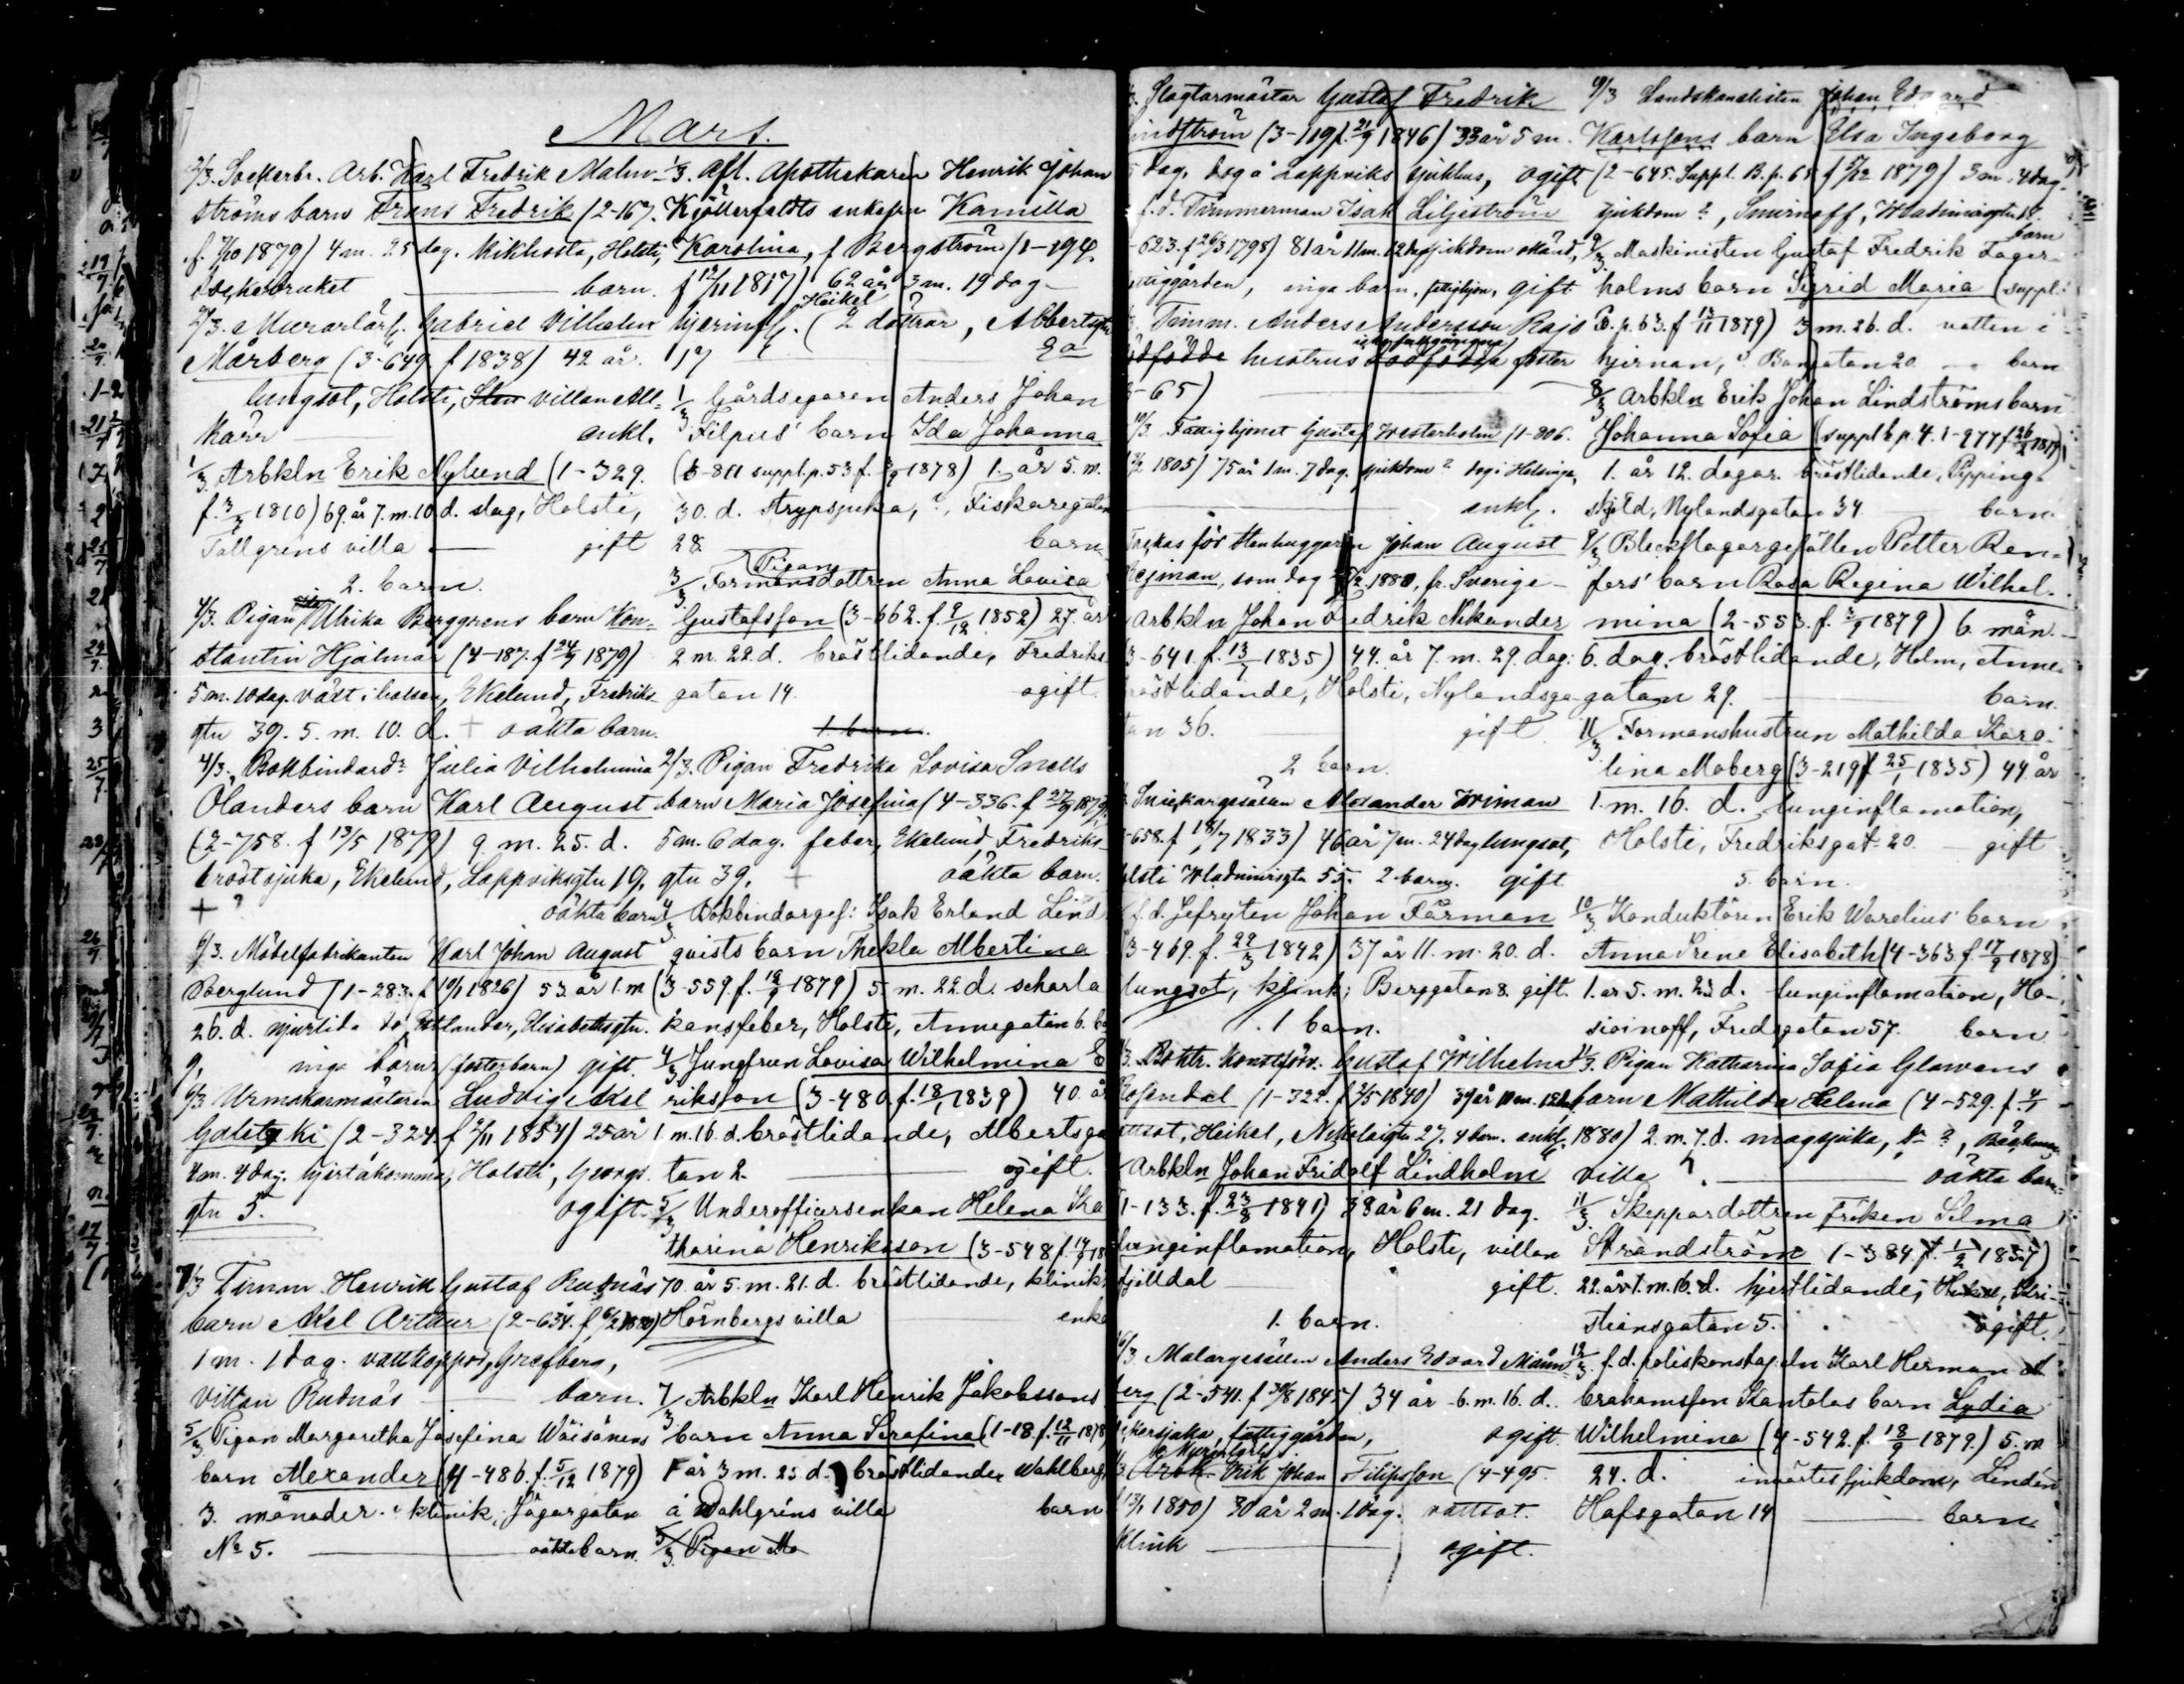 Mars.
2/3. Sockerbr. Arb. Karl Fredrik Malm-
ströms barn Frans Fredrik (2-167.
f. 7/10 1879) 4 m. 25 dag. kikhosta, Holsti,
Sockerbruket barn.
2/3. Murarlärl. Gabriel Vilhelm
Mårberg (3-649 f 1838) 42 år.
lungsot, Holsti, villan All-
kärr enkl.
1/3. Arbkln Erik Nylund (1-329.
f. 3/3 1810) 69. år 7. m. 10 d. slag, Holsti,
Tallgrens villa gift
2. barn.
4/3. Pigan Ulrika Berggrens barn Kon-
stantin Hjalmar (4-187. f 24/9 1879)
5 m. 10 dag. värt i halsen, Ekelund, Fredriks
gtn 39. 5. m. 10. d. + oäkta barn.
4/3. Bokbindard. Julia Vilhelmina
Ölanders barn Karl August
(2-758. f 13/5 1879) 9. m. 25. d.
bröstsjuka, Ekelund, Lappviksgtn 19,
+ ? oäkta barn
6/3. Möbelfabrikanten Karl Johan August
Berglund (1-283. f 10/1 1826) 53. år 1. m
26. d. njurlida Estlander, Elisabethsgtn.
9, inga barn (fosterbarn) gift.
6/3 Urmakarmästaren Ludvig Axel
Golitzki (2-324. f 2/11 1854) 25 år
4 m. 4 dag. hjertåkomma, Holsti, Georgs
gtn 5. ogift.
7/3 Timm. Henrik Gustaf Rudnäs
barn Axel Arthur (2-634. f 6/2 1880)
1 m. 1 dag. vattkoppor, Grefberg,
villan Rudnäs barn.
5/3. Pigan Margaretha Josefina Wäisänens
barn Alexander (4-486. f. 5/12 1879)
3. månader. klinik, Jägargatan
No 5. oäkta barn.
1/3. Aft. Apothekaren Henrik Johan
Kjöllerfeldts enkefru Kamilla
Karolina, f Bergström (1-194.
f 12/11 1817) 62 år 3 m. 19 dag
hjerninfl. Heikel (2 döttrar, Albertsgtn
17 9 a
1/3 Gårdsegaren Anders Johan
Filpus' barn Ida Johanna
(3-811 suppl. p. 53 f. 1878) 1. år 5. m.
30. d. strypsjuka, ?, Fiskaregatan
28. barn
3/3. Pigan Formansdottren Anna Lovisa
Gustafsson (3-662. f. 9/12 1852) 27. år
2 m. 22. d. bröstlidande, Fredriks-
gatan 14. ogift.
1 barn.
2/3. Pigan Fredrika Lovisa Snells
barn Maria Josefina (4-336. f 27/9 1879
5 m. 6 dag. feber, Ekelund, Fredriks-
gtn 39. + oäkta barn.
4/3. Bokbindargef: Isak Erland Lind
qvists barn Thekla Albertina
(3-559. f. 12/9 1879) 5 m. 22. d. scharla
kansfeber, Holsti, Annegatan 6.
4/3 Jungfrun Lovisa Wilhelmina E
riksson (3-480. f. 18/1 1839) 40. år
1. m. 16. d. bröstlidande, Albertsga
tan 2. ogift.
5/3 Underofficersenkan Helena Ka
tharina Henriksson (3-548 f.
70. år 5. m. 21. d. bröstlidande, klinik
Hörnbergs villa enka
7/3 Arbkln Karl Henrik Jakobssons
barn Anna Serafina (1-18. f. 12/11 1878
1 år 3 m. 25 d. bröstlidande Wahlberg
å Wahlgrens villa barn
5/3. Pigan Ma
3. Slagtarmästar Gustaf Fredrik
indström (3-119 f. 21/9 1846) 33 år 5 m.
dag. dog å Lappviks sjukhus, ogift
f. d. Timmerman Isak Liljeström
-623. f 26/3 1798) 81 år 11 m. 12 d. sjukdom okänd,
attiggården, inga barn, fattighjon, gift
Timm. Anders Andersson Rajs
ödfödde hustrus dödfödda foster
-65)
10/3. Fattighjonet Gustaf Westerholm (1-806.
1805) 75 år 1 m. 7 dag. sjukdom ? dog i Helsinge,
enkl.
för stenhuggaren Johan August
ejman, som dog 1880, fr. Sverige
Arbkln Johan Fredrik Nikander
3-641. f. 13/7 1835) 44. år 7. m. 29. dag.
röstlidande, Holsti, Nylandsga-
tan 36. gift.
2 barn.
Snickargesällen Alexander Wriman
-658. f 18/7 1833) 46 år 7 m. 24 dag lungsot,
olsti Wladimirsgtn 55. 2 barn. gift
f. d. Jefrejten Johan Färman
3-469. f. 22/3 1842) 37 år 11. m. 20. d.
lungsot, klinik; Berggatan 8. gift.
1 barn.
3. Bokh. Gustaf Wilhelm
Rosendal (1-322. f 2/5 1840) 39 år 10 m.
ttsot, Heikel, Nikolaigtn 27. 4 barn. enkl.
Arbkln Johan Fridolf Lindholm
1-133. f. 23/8 1841) 38 år 6 m. 21 dag.
lunginflamation, Holsti, villan
fjälldal gift.
1. barn.
16/3. Malargesällen Anders Edvard Månn
berg (2-541. f 30/8 1845) 34 år 6. m. 16. d.
sjuka, fattiggården, ogift
3. Arbk. Erik Johan Filipsson (4-495.
13/1 1850) 30 år 2 m. 1 dag. vattsot.
klinik ogift.
9/3 Landskanslisten Johan Edvard
Karlssons barn Elsa Ingeborg
(2-645. Suppl. B. p. 65 f 5/12 1879) 3 m. 4 dag.
sjukdom ?, Smirnoff, Wladimirsgtn 18.
barn
9/3. Maskinisten Gustaf Fredrik Lager-
holms barn Sigrid Maria (suppl.
B. p. 63. f 13/11 1879) 3 m. 26. d. vatten i
hjernan, ? Bangatan 20. barn
8/3 Arbkln Erik Johan Lindströms barn
Johanna Sofia (suppl b p. 4. 1-977 f 26/2 1879)
1. år 12. dagar. bröstlidande, Pipping-
sköld, Nylandsgatan 34 barn.
9/3 Bleckslagargesällen Petter Ren-
fors' barn Rosa Regina Wilhel-
mina (2-553. f. 3/9 1879) 6. mån.
6. dag. bröstlidande, Holm, Anne-
gatan 29. barn.
11/3. Formanshustrun Mathilda Karo-
lina Moberg (3-219 f 25/1 1835) 44. år
1. m. 16. d. lunginflamation,
Holsti, Fredriksgat. 20. gift
5. barn.
10/3 Konduktören Erik Warelius' barn
Anna Irene Elisabeth (4-363. f. 17/9 1878)
1. år 5. m. 23 d. lunginflamation, Ho-
sioinoff, Fredsgatan 57. barn
11/3. Pigan Katharina Sofia Glawens
barn Mathilda Helena (4-529. f. 4/1
1880) 2. m. 7. d. magsjuka, ?,
villa ?. oäkta barn
11/3. Skeppardottren Fröken Selma
Strandström 1-384. f. 1/2 1857)
22. år 1. m. 16. d. hjertlidande, Heikel, Kri-
stiansgatan 5. ogift.
12/3. f. d. poliskonstapeln Karl Herman A
brahamsson Kantolas barn Lydia
Wilhelmina (4-542. f. 18/9 1879.) 5. m
24. d. invärtes sjukdom, Lindén
Hafsgatan 14 barn